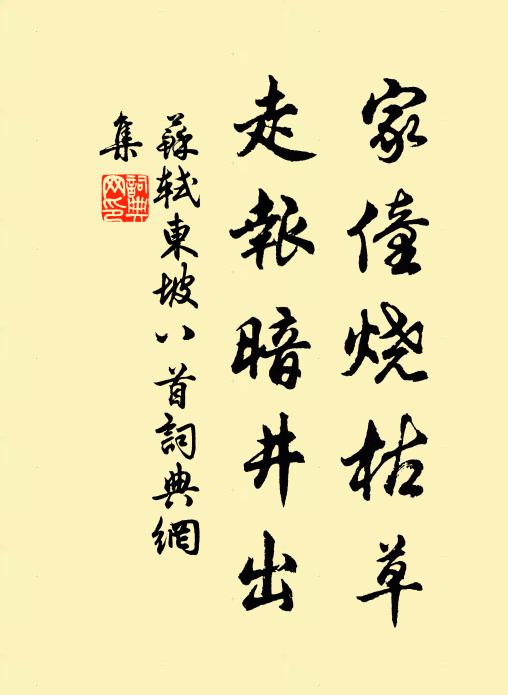 家僮烧枯草
走報暗井出
蘇軾東坡八首詞典網
集
詞典
网印